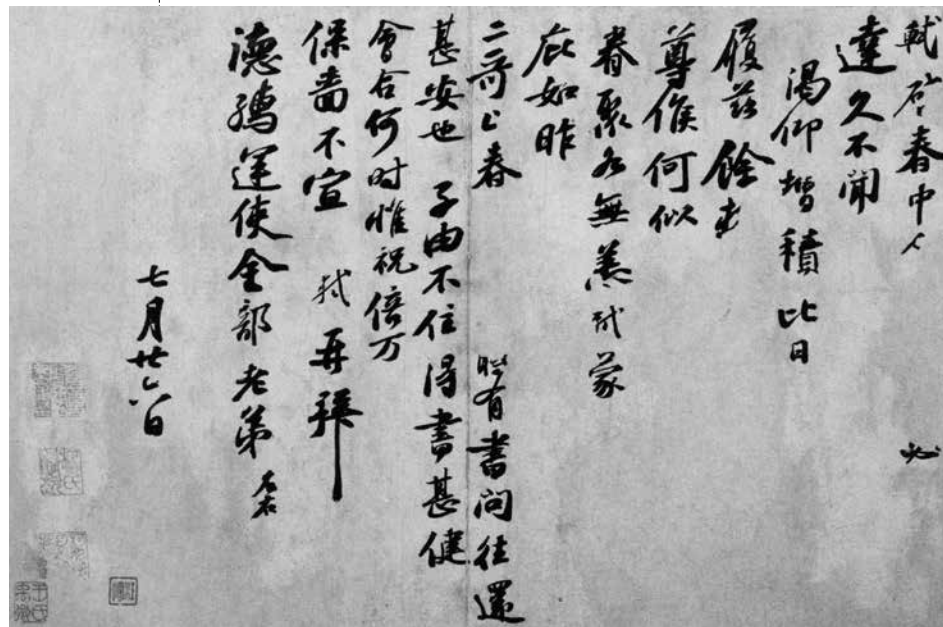 軾啓春中人必
達久不聞
渴仰增積比日
履茲餘熱
尊候何似
眷聚各無恙軾蒙
庇如昨
二哥上春時有書問往還
甚安也子由不住得書甚健
會合何時惟祝倍万
保嗇不宣軾再拜
德孺運使金部老弟
七月廿六日